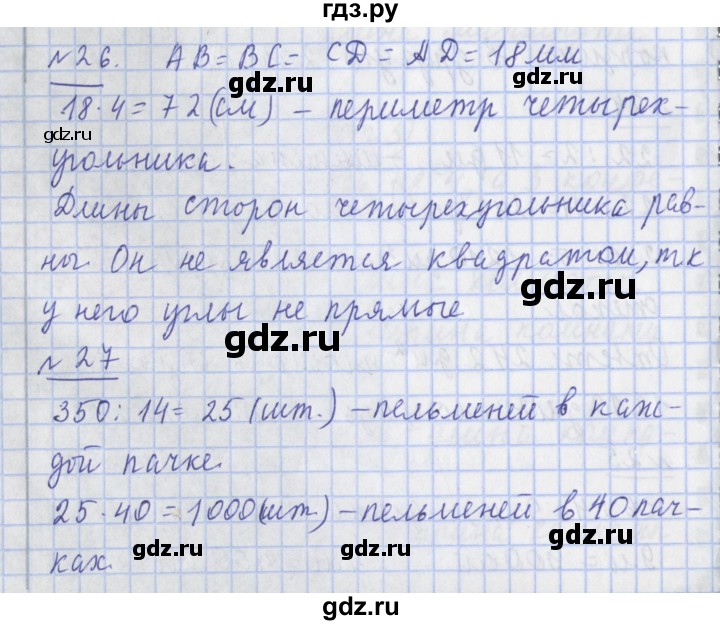 гдз.ру
№26. AB = BC = CD = AD = 18 мм
gdz.ru
gdz.ru
18·4 = 72 (см) – периметр четырех-
gdz.ru
gdz.ru
угольника.
Длины сторон четырехугольника рав-
ны. Он не является квадратом, т к
gdz.ru
у него углы не прямые
gdz.ru
№27
350 : 14 = 25 (шт.) – пельменей в каж-
gdz.ru
gdz.ru
дой пачке.
25·40 = 1000 (шт.) – пельменей в 40 пач-
gdz.ru
gdz.ru
ках.
gdz.ru